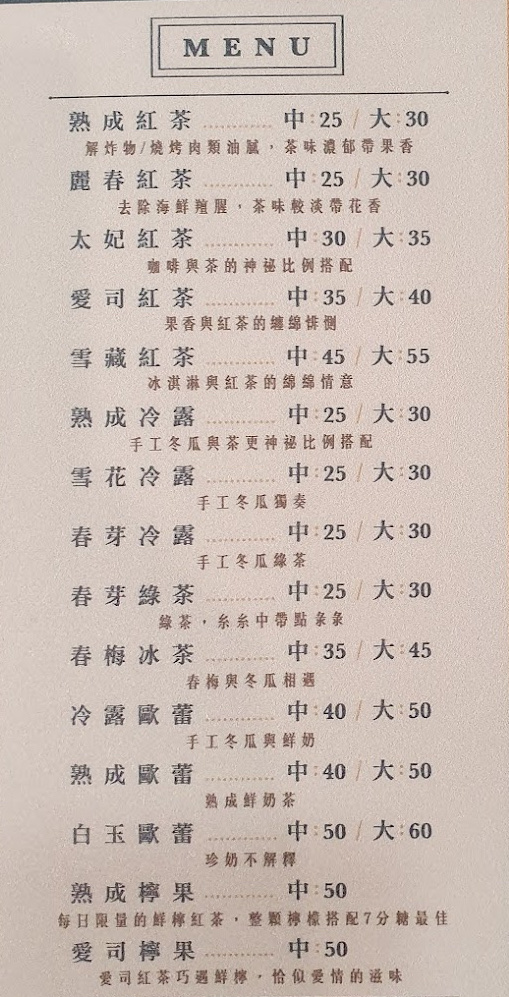 MENU
熟成紅茶 ............ 中:25 / 大:30
解炸物/燒烤肉類油膩，茶味濃郁帶果香
麗春紅茶 ............ 中:25 / 大:30
去除海鮮羶腥，茶味較淡帶花香
太妃紅茶 ............ 中:30 / 大:35
咖啡與茶的神祕比例搭配
愛司紅茶 ............ 中:35 / 大:40
果香與紅茶的纏綿悱惻
雪藏紅茶 ............ 中:45 / 大:55
冰淇淋與紅茶的綿綿情意
熟成冷露 ............ 中:25 / 大:30
手工冬瓜與茶更神祕比例搭配
雪花冷露 ............ 中:25 / 大:30
手工冬瓜獨奏
春芽冷露 ............ 中:25 / 大:30
手工冬瓜綠茶
春芽綠茶 ............ 中:25 / 大:30
綠茶，糸糸中帶點彔彔
春梅冰茶 ............ 中:35 / 大:45
春梅與冬瓜相遇
冷露歐蕾 ............ 中:40 / 大:50
手工冬瓜與鮮奶
熟成歐蕾 ............ 中:40 / 大:50
熟成鮮奶茶
白玉歐蕾 ............ 中:50 / 大:60
珍奶不解釋
熟成檸果 ............ 中:50
每日限量的鮮檸紅茶，整顆檸檬搭配7分糖最佳
愛司檸果 ............ 中:50
愛司紅茶巧遇鮮檸，恰似愛情的滋味